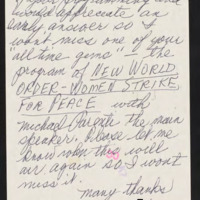 would appreciate an
early answer so I
won't miss one of your
"all time gems" - the
program of NEW WORLD
ORDER-WOMEN STRIKE
FOR PEACE with
Michael Parenti the main
speaker. Please let me
know when this will
air again so I won't
miss it.
Many thanks